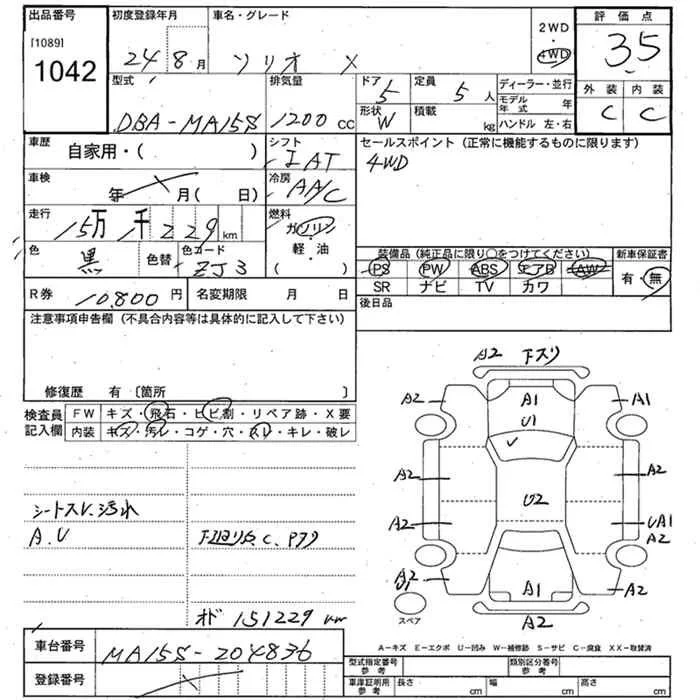 出品番号
[1089]
1042
初度登録年月
24 8月
車名・グレード
ソリオ X
2WD
・
4WD
評価点
3.5
外装 内装
C C
型式
DBA-MA15S
排気量
1200 cc
ドア 5
形状 W
定員
5人
積載
kg
ディーラー・並行
モデル年式 年
ハンドル 左・右
車歴
自家用・( )
シフト
IAT
セールスポイント (正常に機能するものに限ります)
4WD
車検
年 月( 日)
冷房
AA/C
走行
15万 1千 229 km
燃料
ガソリン
軽・油
( )
色
黒
色替
色コード
ZJ3
装備品 (純正品に限り○をつけてください)
新車保証書
PS PW ABS エアB AW
有・無
SR ナビ TV カワ
R券
10,800円
名変期限 月 日
後日品
注意事項申告欄 (不具合内容等は具体的に記入して下さい)
修復歴 有 〔箇所 〕
検査員
記入欄
FW キズ・飛石・ヒビ割・リペア跡・X要
内装 キズ・汚レ・コゲ・穴・スレ・キレ・破レ
シートスレ.汚れ
A.U
下廻りS.C.Pアク
オド 151229 km
A2 下スリ
A2
A1
A1
U1
A2
A2
U2
A2
UA1
A2
A2
U1
A1
A2
A2
スペア
A-キズ E-エクボ U-凹み W-補修跡 S-サビ C-腐食 XX-取替済
車台番号
MA15S-204836
登録番号
型式指定番号
参考
類別区分番号
参考
車庫証明用
参考
長さ cm
幅 cm
高さ cm